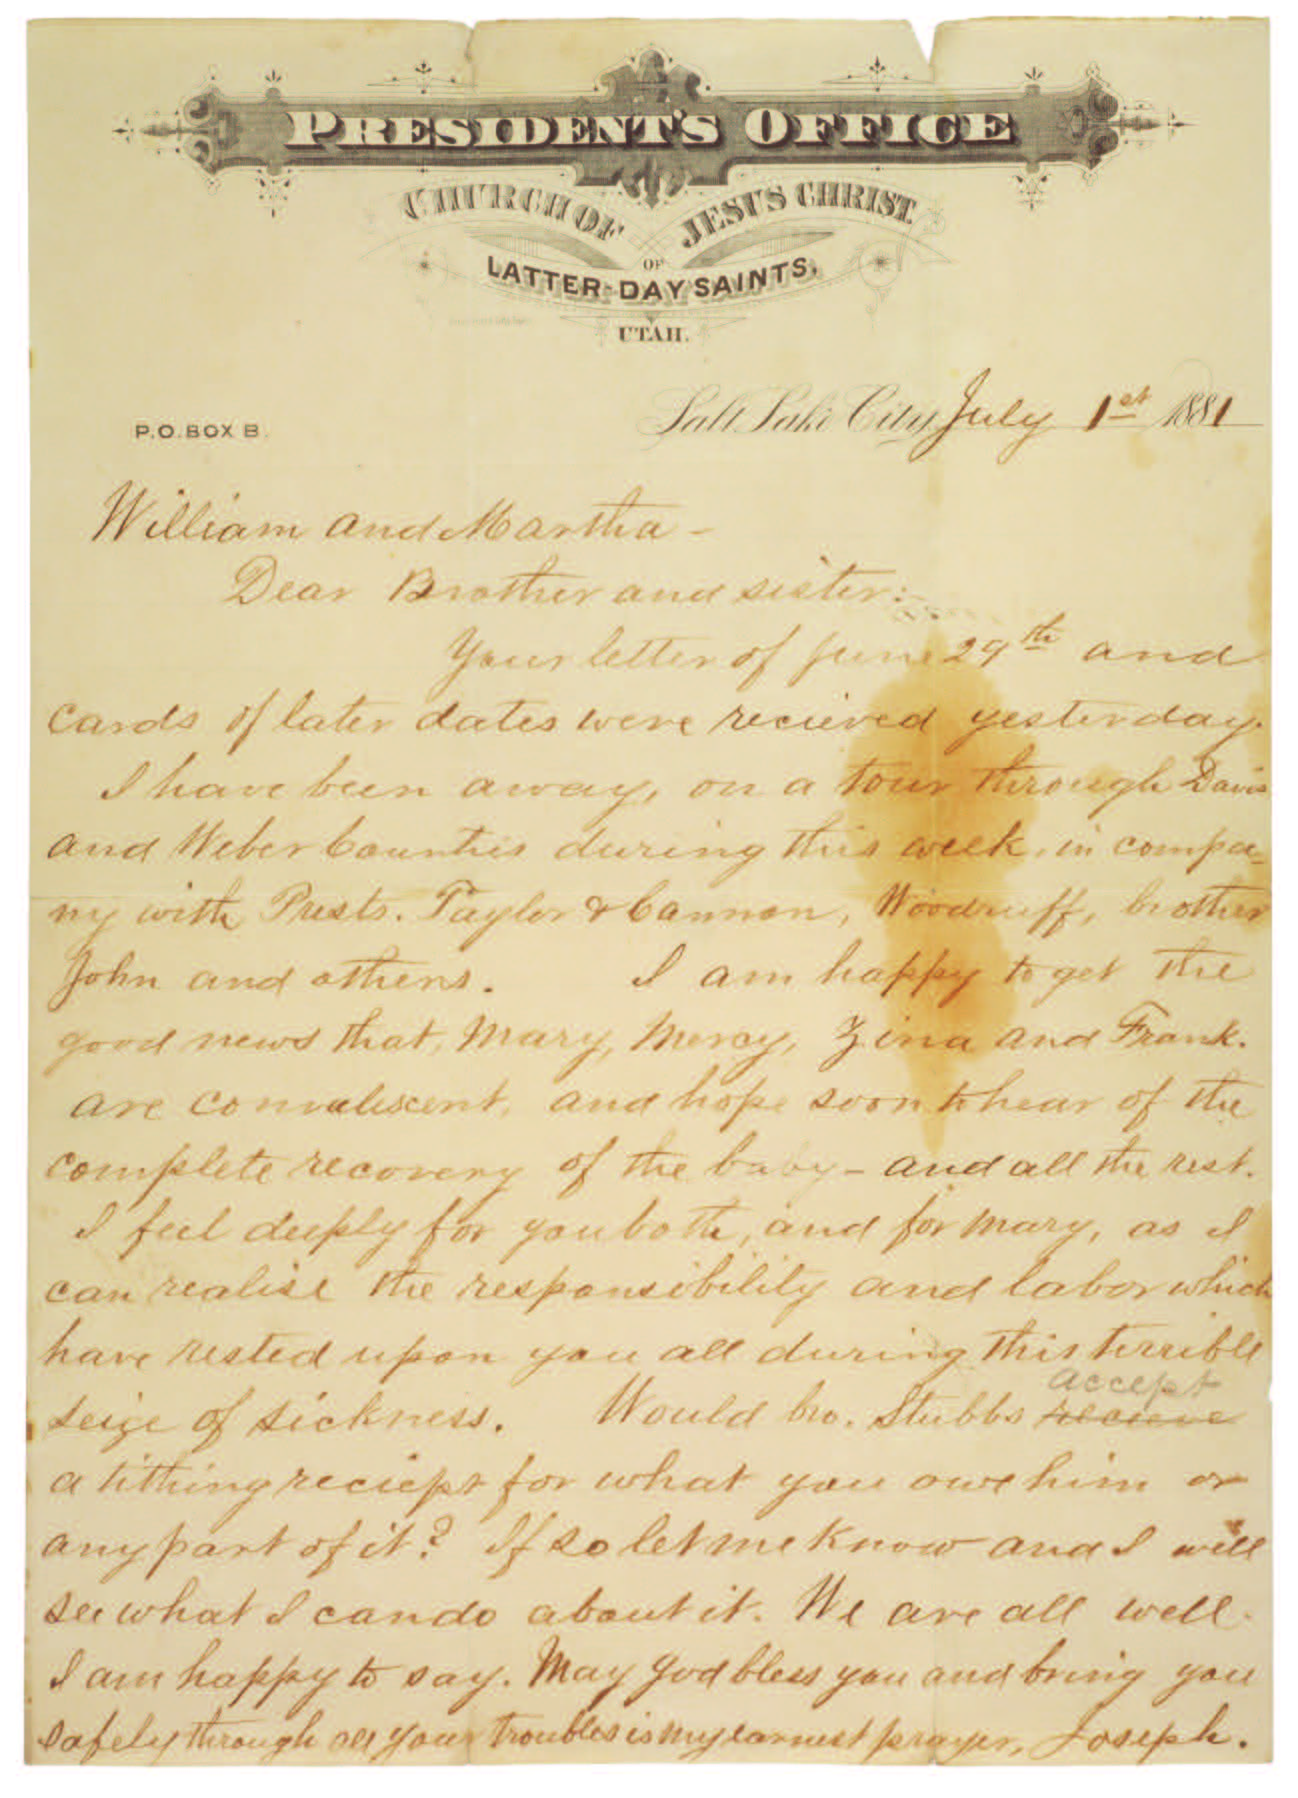 PRESIDENT'S OFFICE
CHURCH OF JESUS CHRIST
OF
LATTER-DAY SAINTS,
UTAH.
Salt Lake City, July 1st 1881
P.O. BOX B.
William and Martha -
Dear Brother and sister:-
Your letter of June 29th and
cards of later dates were recieved yesterday.
I have been away, on a tour through Davis
and Weber Counties during this week, in compa-
ny with Prests. Taylor & Cannon, Woodruff, brother
John and others. I am happy to get the
good news that, Mary, Mercy, Zina and Frank.
are convalescent, and hope soon to hear of the
complete recovery of the baby - and all the rest.
I feel deeply for you both, and for Mary, as I
can realise the responsibility and labor which
have rested upon you all during this terrible
accept
seige of sickness. Would bro. Stubbs recieve
a tithing reciept for what you owe him or
any part of it? If so let me know and I will
see what I can do about it. We are all well.
I am happy to say. May God bless you and bring you
safely through all your troubles is my earnest prayer, Joseph.